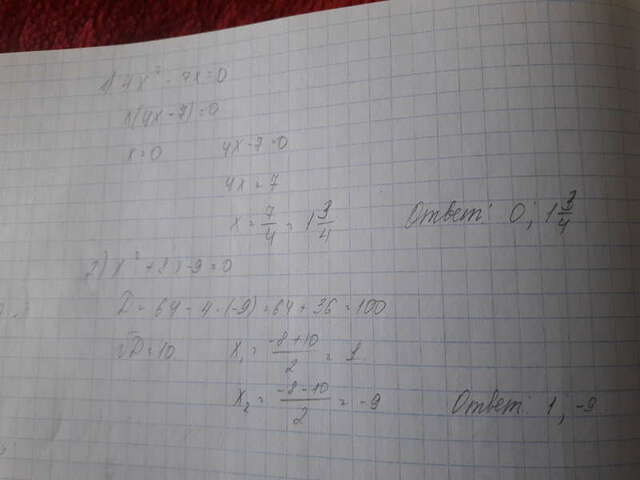 1) 4x² - 7x = 0
x(4x - 7) = 0
x = 0 4x - 7 = 0
4x = 7
x = 7/4 = 1 3/4 Ответ: 0; 1 3/4
2) x² + 8x - 9 = 0
D = 64 - 4 · (-9) = 64 + 36 = 100
√D = 10 x₁ = (-8 + 10)/2 = 1
x₂ = (-8 - 10)/2 = -9 Ответ: 1; -9